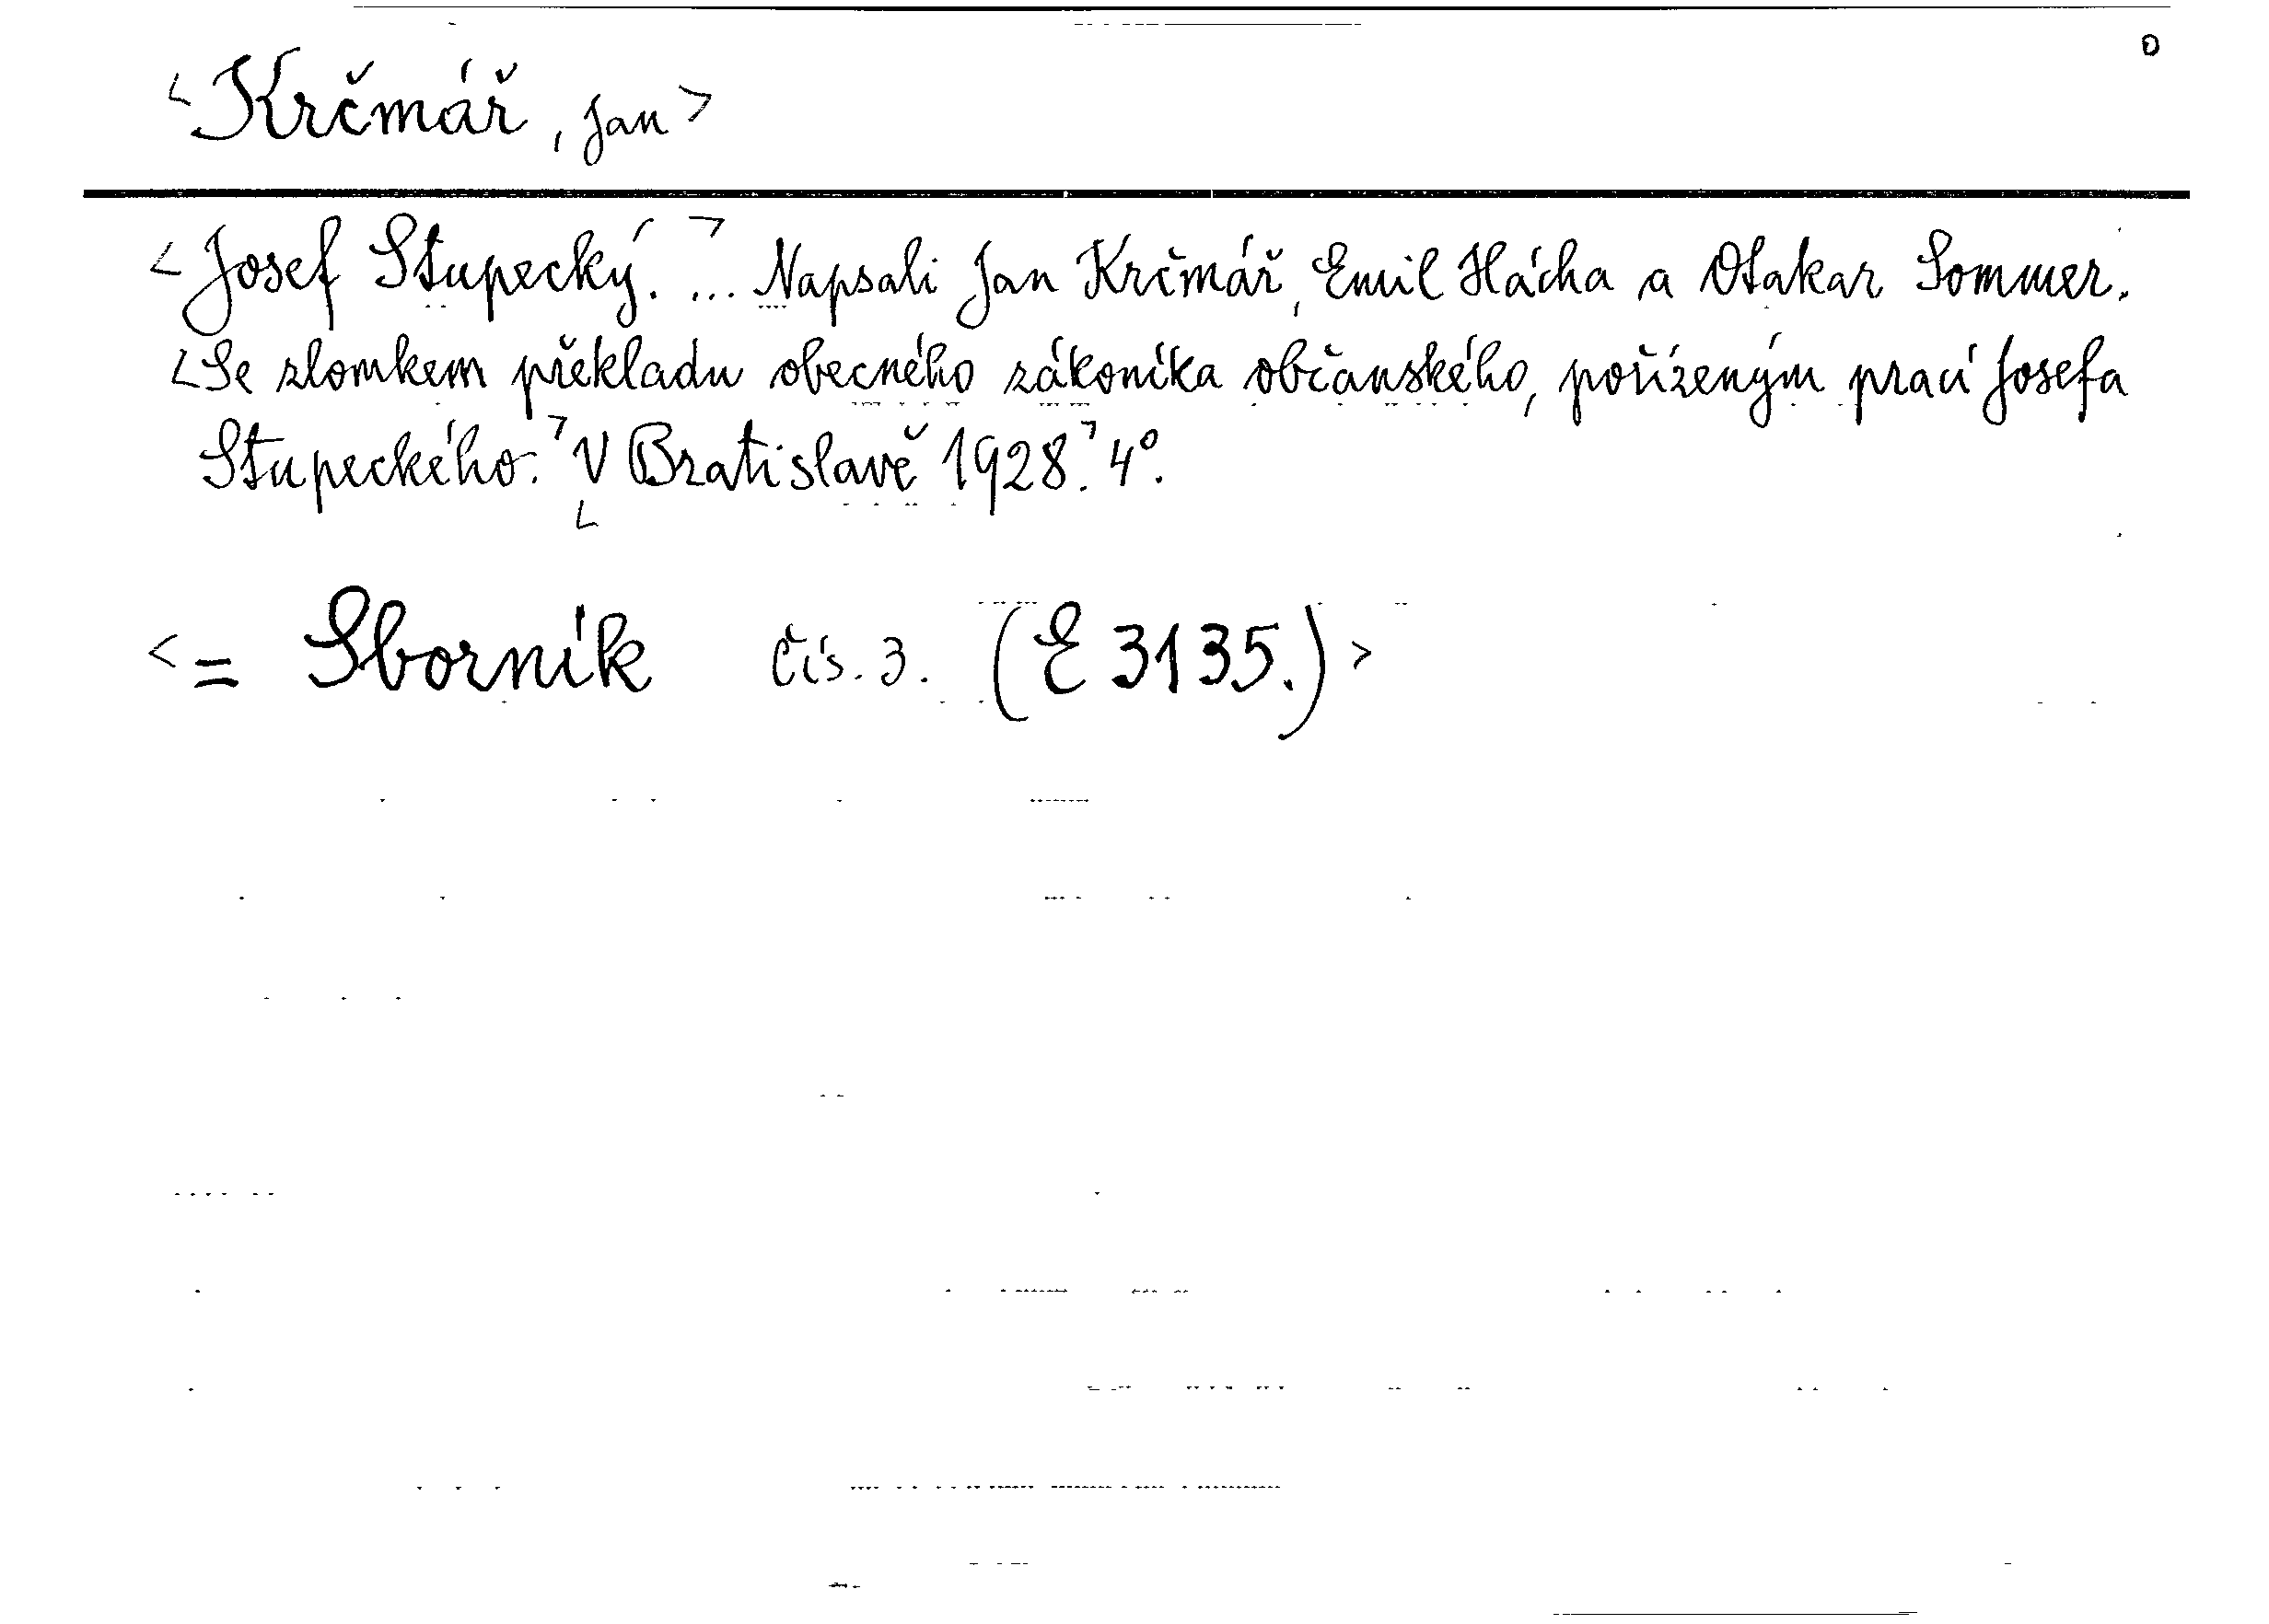 <Krčmář, Jan>
<Josef Stupecký. ...> Napsali Jan Krčmář, Emil Hácha a Otakar Sommer.
<Se zlomkem překladu obecného zákoníka občanského, pořízeným prací Josefa
Stupeckého.> <V Bratislavě 1928.> 4°.
<= Sborník čís. 3. (E 3135.)>